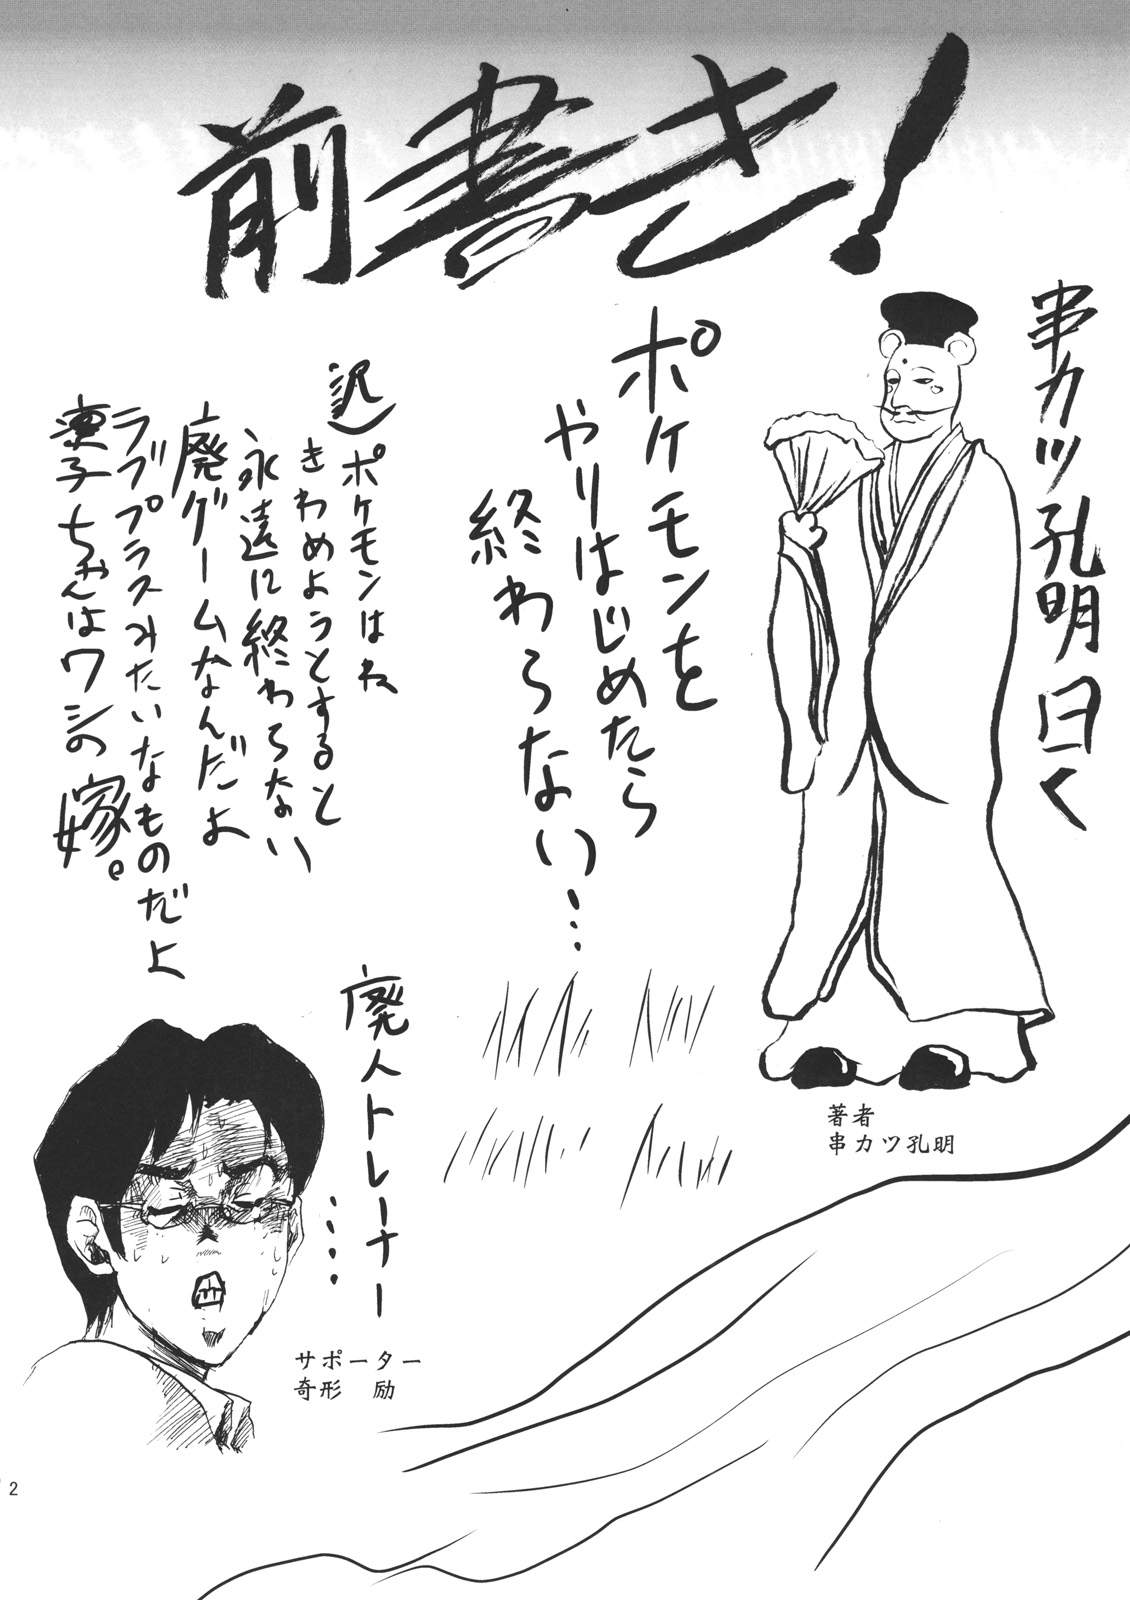 前書き!
串カツ孔明曰く
ポケモンを
やりはじめたら
終わらない…
訳)ポケモンはね
きわめようとすると
永遠に終わらない
廃ゲームなんだよ
ラブプラスみたいなものだよ
凛子ちゃんはワシの嫁。
著者
串カツ孔明
廃人トレーナー
……
サポーター
奇形 励
2